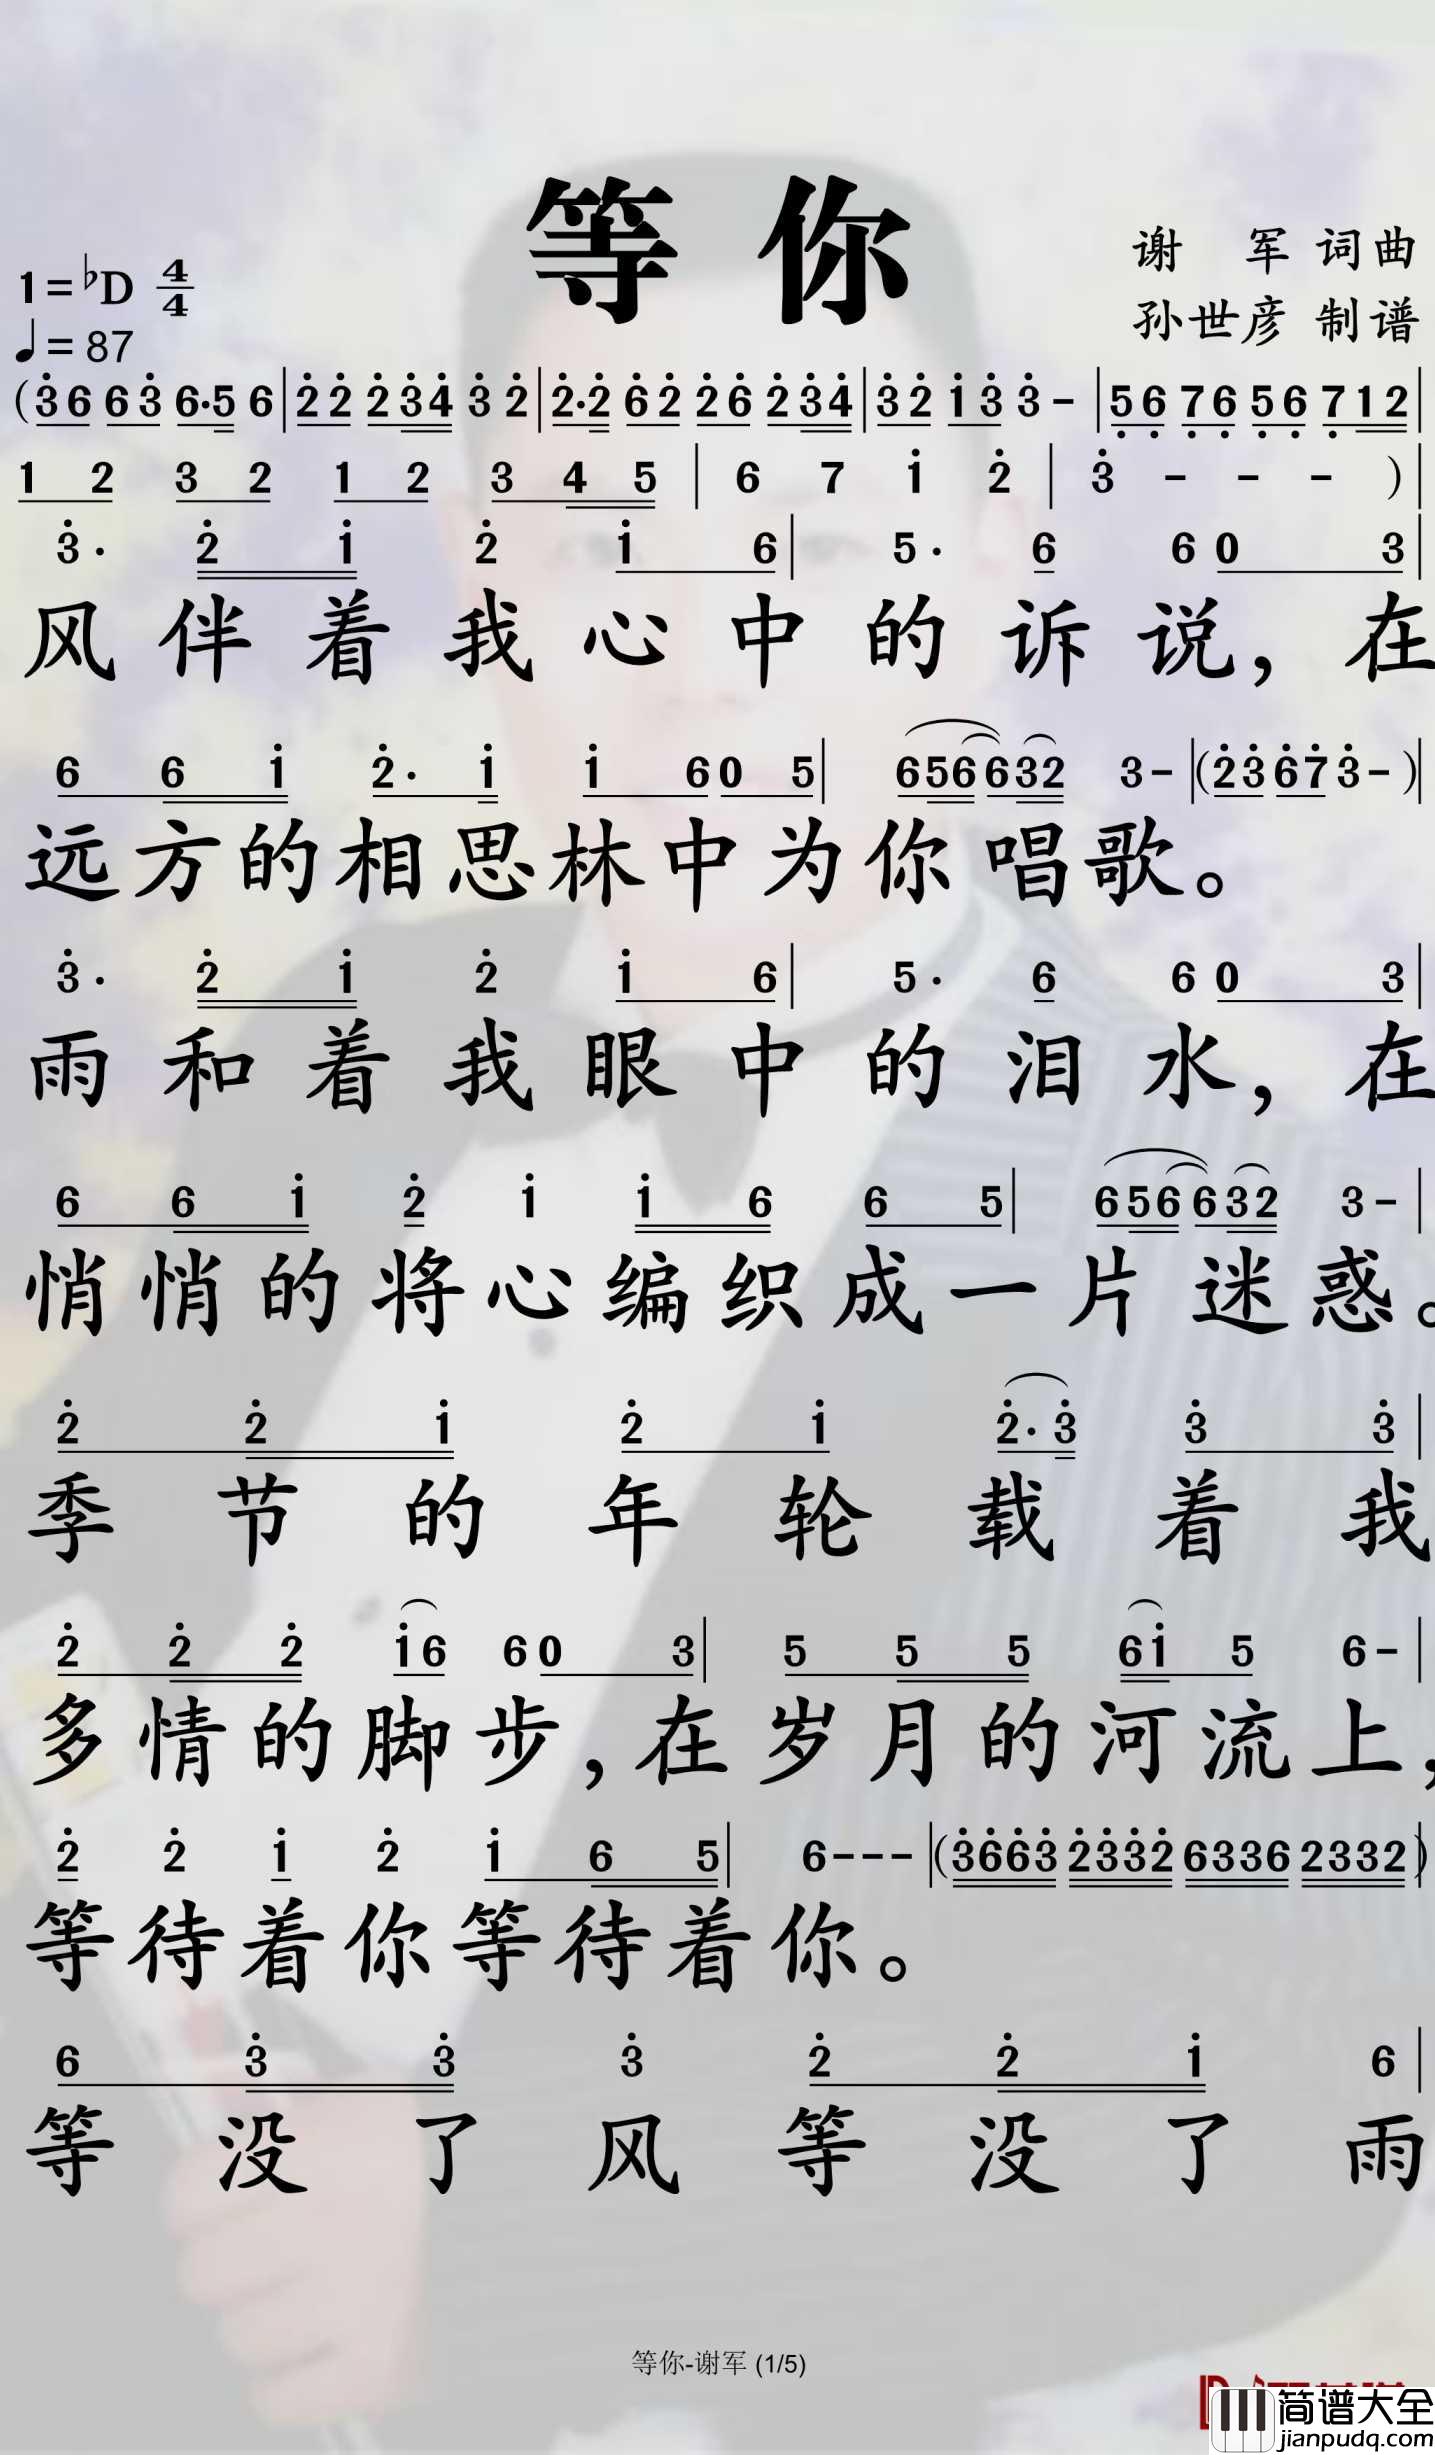 等你
谢 军 词曲
孙世彦 制谱
1=♭D 4/4
♩=87
(3̇6 63̇ 6·5 6|2̇2̇ 2̇3̇4̇ 3̇ 2̇|2̇·2̇ 6̇2̇ 2̇6̇ 2̇3̇4̇|3̇2̇ 1̇3̇ 3̇-|5̣6̣ 7̣6̣ 5̣6̣ 7̣12|
1 2 3 2 1 2 3 4 5|6 7 1̇ 2̇|3̇ - - - )|
3̇· 2̇ 1̇ 2̇ 1̇ 6|5· 6 6 0 3|
风伴着我心中的诉说，在
6 6 1̇ 2̇· 1̇ 1̇ 6 0 5|656632 3-|(2̇3̇ 6̇7̇ 3̇-)|
远方的相思林中为你唱歌。
3̇· 2̇ 1̇ 2̇ 1̇ 6|5· 6 6 0 3|
雨和着我眼中的泪水，在
6 6 1̇ 2̇ 1̇ 1̇ 6 6 5|656632 3-|
悄悄的将心编织成一片迷惑。
2̇ 2̇ 1̇ 2̇ 1̇ 2̇·3̇ 3̇ 3̇|
季节的年轮载着我
2̇ 2̇ 2̇ 1̇6 6 0 3|5 5 5 61̇ 5 6-|
多情的脚步，在岁月的河流上，
2̇ 2̇ 1̇ 2̇ 1̇ 6 5|6---|(3̇6̇6̇3̇ 2̇3̇3̇2̇ 6336 2332)|
等待着你等待着你。
6 3̇ 3̇ 3̇ 2̇ 2̇ 1̇ 6|
等没了风等没了雨
等你-谢军 (1/5)
简谱大全
jianpudq.com